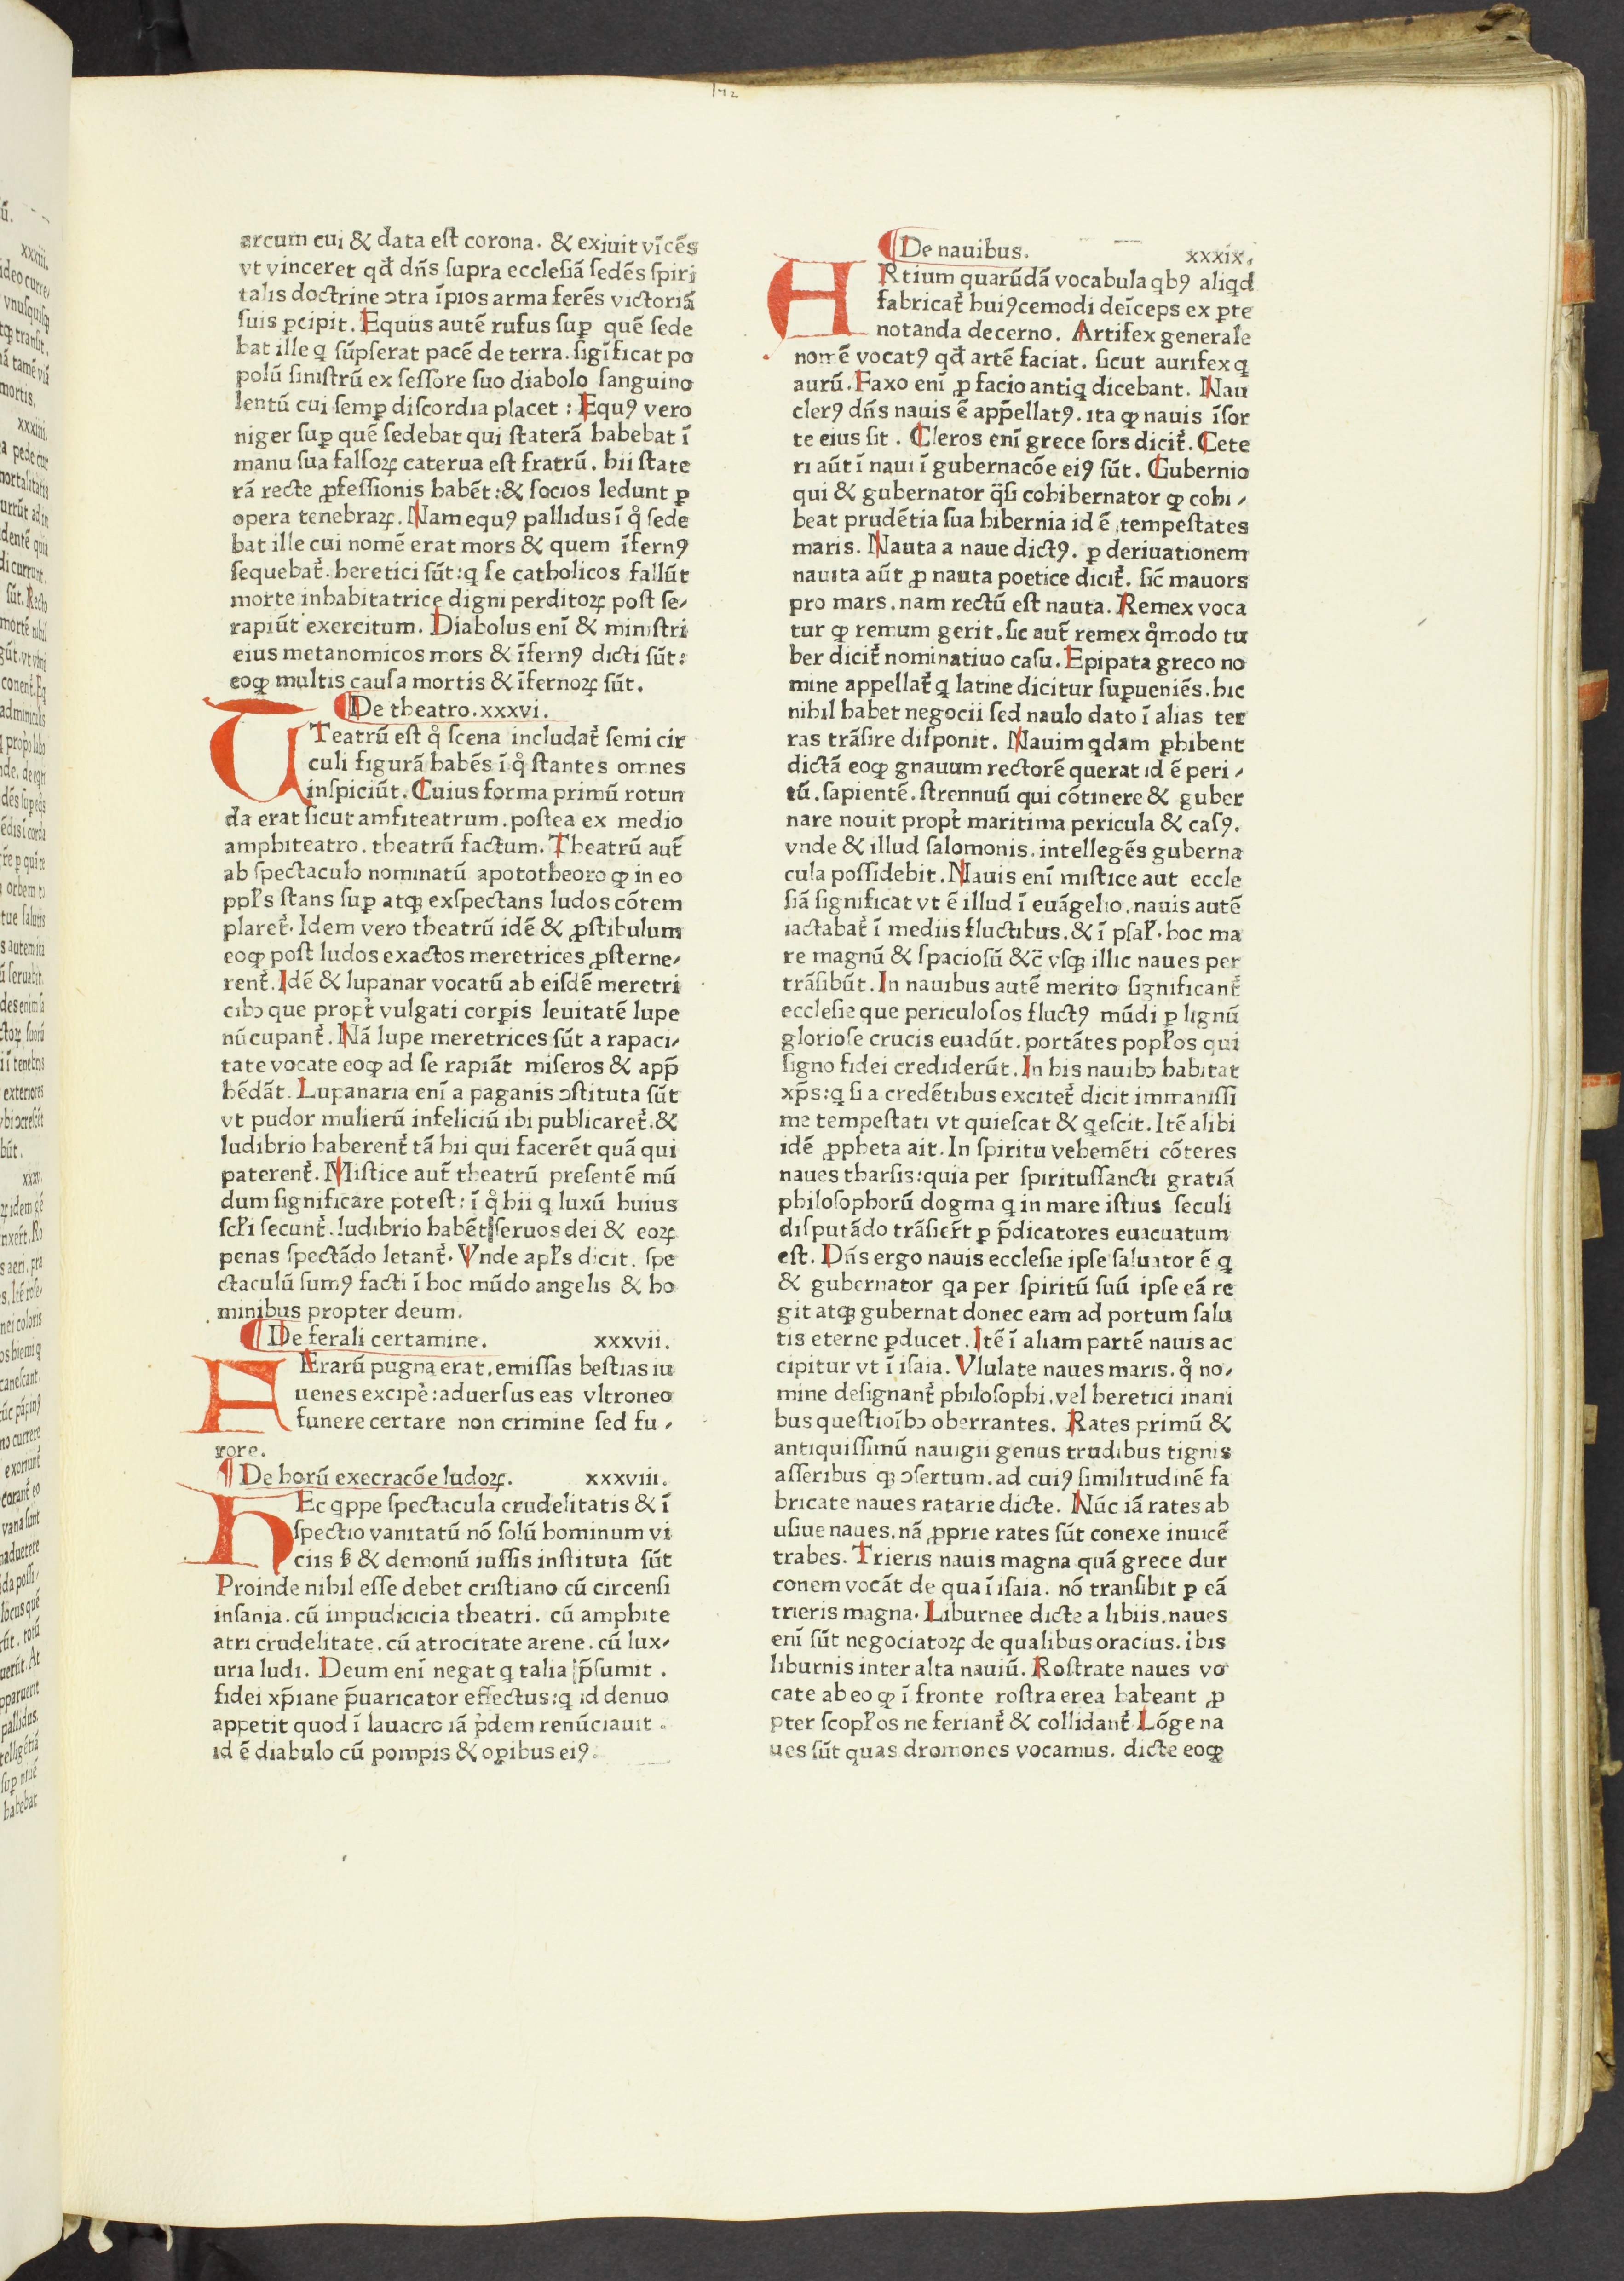 172
arcum cui & data eſt corona. & exiuit vīcēs
vt vinceret qđ dn̄s ſupra eccleſiā ſedēs ſpiri
talis doctrine ↄtra īpios arma ferēs victoriā
ſuis ꝑcipit. Equus autē rufus ſuꝑ quē ſede
bat ille q ſūpſerat pacē de terra. ſigīficat po
polū ſiniſtrū ex ſeſſore ſuo diabolo ſanguino
lentū cui ſemꝑ diſcordia placet : Equꝯ vero
niger ſuꝑ quē ſedebat qui ſtaterā habebat ī
manu ſua falſoꝝ caterua eſt fratrū. hii ſtate
rā recte ꝓfeſſionis habēt:& ſocios ledunt ꝑ
opera tenebraꝝ. Nam equꝯ pallidus ī qͦ ſede
bat ille cui nomē erat mors & quem īfernꝯ
ſequebat᷑. heretici ſūt:q ſe catholicos fallūt
morte inhabitatrice digni perditoꝝ poſt ſe⸗
rapiūt exercitum. Diabolus enī & miniſtri
eius metanomicos mors & īfernꝯ dicti ſūt:
eoꝙ multis cauſa mortis & īfernoꝝ ſūt.
De theatro. xxxvi.
TTeatrū eſt qͦ ſcena includat᷑ ſemi cir
culi figurā habēs ī qͦ ſtantes omnes
inſpiciūt. Cuius forma primū rotun
da erat ſicut amfiteatrum. poſtea ex medio
amphiteatro. theatrū factum. Theatrū aut̄
ab ſpectaculo nominatū apototheoro ꝙ in eo
ppl̄s ſtans ſuꝑ atqꝫ exſpectans ludos cōtem
plaret᷑. Idem vero theatrū idē & ꝓſtibulum
eoꝙ poſt ludos exactos meretrices ꝓſterne⸗
rent᷑. Idē & lupanar vocatū ab eiſdē meretri
cibꝫ que propt᷑ vulgati corꝑis leuitatē lupe
nūcupant᷑. Nā lupe meretrices ſūt a rapaci⸗
tate vocate eoꝙ ad ſe rapiāt miſeros & app̄
hēdāt. Lupanaria enī a paganis ↄſtituta ſūt
vt pudor mulierū infeliciū ibi publicaret᷑. &
ludibrio haberent᷑ tā hii qui facerēt quā qui
paterent᷑. Miſtice aut᷑ theatrū preſentē mū
dum ſignificare poteſt: ī qͦ hii q luxū huius
ſcl̄i ſecunt᷑. ludibrio habēt ſeruos dei & eoꝝ
penas ſpectādo letant᷑. Vnde apl̄s dicit. ſpe
ctaculū ſumꝯ facti ī hoc mūdo angelis & ho
minibus propter deum.
De ferali certamine. xxxvii.
FErarū pugna erat. emiſſas beſtias iu
uenes excipe᷑: aduerſus eas vltroneo
funere certare non crimine ſed fu⸗
rore.
De horū execracōe ludoꝝ. xxxviii.
HEc qppe ſpectacula crudelitatis & ī
ſpectio vanitatū nō ſolū hominum vi
ciis ſꝫ & demonū iuſſis inſtituta ſūt
Proinde nihil eſſe debet criſtiano cū circenſi
inſania. cū impudicicia theatri. cū amphite
atri crudelitate. cū atrocitate arene. cū lux⸗
uria ludi. Deum enī negat q talia p̄ſumit.
fidei xp̄iane p̄uaricator effectus:q id denuo
appetit quod ī lauacro iā pͥdem renūciauit.
id ē diabulo cū pompis & oꝑibus eiꝯ.
De nauibus. xxxix.
ARtium quarūdā vocabula qbꝯ aliqd
fabricat᷑ huiꝯcemodi deīceps ex ꝑte
notanda decerno. Artifex generale
nomē vocatꝯ qđ artē faciat. ſicut aurifex q
aurū. Faxo enī ꝓ facio antiq dicebant. Nau
clerꝯ dn̄s nauis ē app̄ellatꝯ. ita ꝙ nauis īſor
te eius ſit. Cleros enī grece ſors dicit᷑. Cete
ri aūt ī naui ī gubernacōe eiꝯ ſūt. Gubernio
qui & gubernator q̈ſi cohibernator ꝙ cohi⸗
beat prudētia ſua hibernia id ē tempeſtates
maris. Nauta a naue dictꝯ. ꝑ deriuationem
nauita aūt ꝓ nauta poetice dicit᷑. ſic̄ mauors
pro mars. nam rectū eſt nauta. Remex voca
tur ꝙ remum gerit. ſic aut᷑ remex qͦmodo tu
ber dicit᷑ nominatiuo caſu. Epipata greco no
mine appellat᷑ q latine dicitur ſuꝑueniēs. hic
nihil habet negocii ſed naulo dato ī alias ter
ras trāſire diſponit. Nauim qdam ꝑhibent
dictā eoꝙ gnauum rectorē querat id ē peri⸗
tū. ſapientē. ſtrennuū qui cōtinere & guber
nare nouit propt᷑ maritima pericula & caſꝯ.
vnde & illud ſalomonis. intellegēs guberna
cula poſſidebit. Nauis enī miſtice aut eccle
ſiā ſignificat vt ē illud ī euāgelio. nauis autē
iactabat᷑ ī mediis fluctibus. & ī pſal̄. hoc ma
re magnū & ſpacioſū &c̄ vſqꝫ illic naues per
trāſibūt. In nauibus autē merito ſignificant᷑
eccleſie que periculoſos fluctꝯ mūdi ꝑ lignū
glorioſe crucis euadūt. portātes popl̄os qui
ſigno fidei crediderūt. In his nauibꝫ habitat
xp̄s:q ſi a credētibus excitet᷑ dicit immaniſſi
me tempeſtati vt quieſcat & qeſcit. Itē alibi
idē ꝓpheta ait. In ſpiritu vehemēti cōteres
naues tharſis:quia per ſpirituſſancti gratiā
philoſophorū dogma q in mare iſtius ſeculi
diſputādo trāſier̄t ꝑ p̄dicatores euacuatum
eſt. Dn̄s ergo nauis eccleſie ipſe ſaluator ē q
& gubernator qa per ſpiritū ſuū ipſe eā re
git atqꝫ gubernat donec eam ad portum ſalu
tis eterne ꝑducet. Itē ī aliam partē nauis ac
cipitur vt ī iſaia. Vlulate naues maris. qͦ no⸗
mine deſignant᷑ philoſophi. vel heretici inani
bus queſtioībꝫ oberrantes. Rates primū &
antiquiſſimū nauigii genus trudibus tignis
aſſeribus qꝫ ↄſertum. ad cuiꝯ ſimilitudinē fa
bricate naues ratarie dicte. Nūc iā rates ab
uſiue naues. nā ꝓprie rates ſūt conexe inuicē
trabes. Trieris nauis magna quā grece dur
conem vocāt de qua ī iſaia. nō tranſibit ꝑ eā
trieris magna. Liburnee dicte a libiis. naues
enī ſūt negociatoꝝ de qualibus oracius. ibis
liburnis inter alta nauiū. Roſtrate naues vo
cate ab eo ꝙ ī fronte roſtra erea habeant ꝓ
pter ſcopl̄os ne feriant᷑ & collidant᷑. Lōge na
ues ſūt quas dromones vocamus. dicte eoꝙ